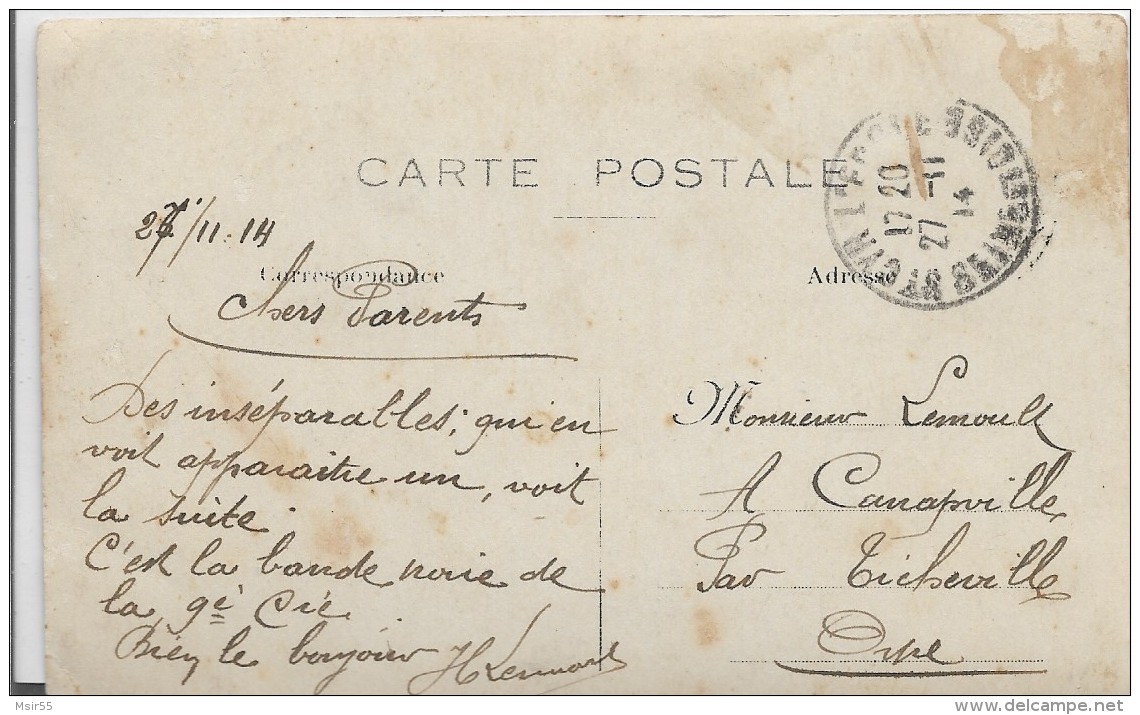 CARTE POSTALE
17 20
27 - 11
14
ST CYR L'ECOLE SEINE ET OISE
27/11.14
Correspondance
Adresse
Chers Parents
Des inséparables; qui en
voit apparaitre un, voit
la suite.
C'est la bande noire de
la 9e Cie
Bien le bonjour
Monsieur Lemoult
A Canapville
Par Ticheville
Orne
Msir55
www.delcampe.net